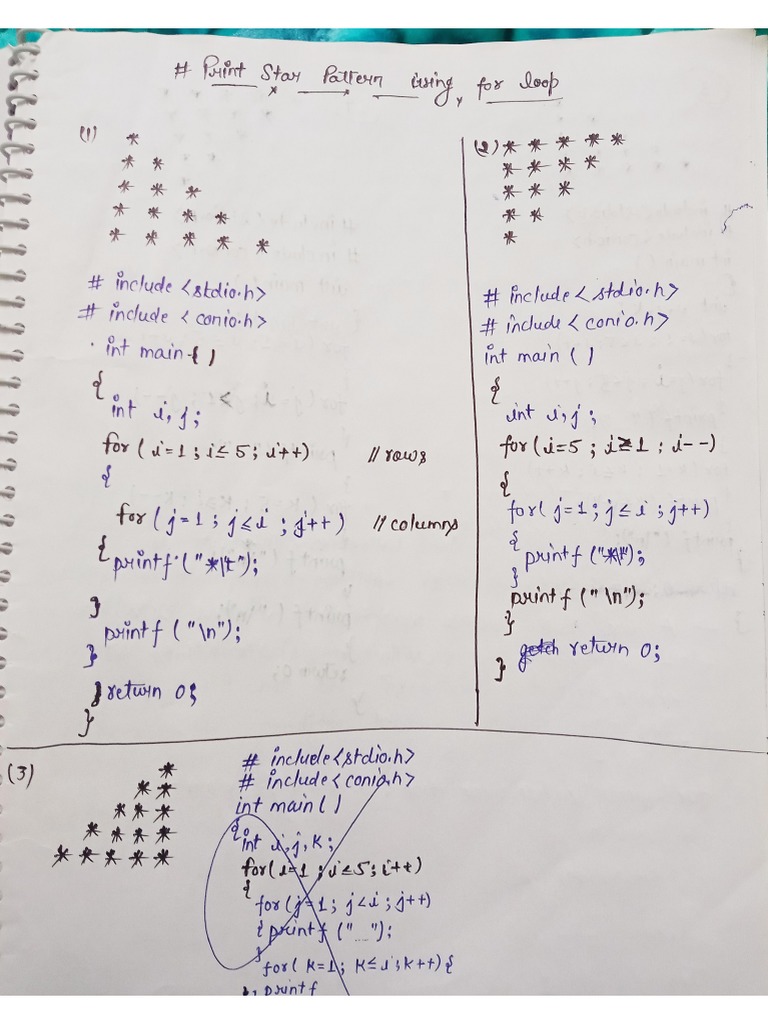 # Print Star Pattern using for loop
(1)
*
* *
* * *
* * * *
* * * * *
# include <stdio.h>
# include <conio.h>
int main ( )
{
int i, j;
for ( i=1 ; i≤ 5 ; i++) // rows
{
for ( j=1 ; j≤i ; j++ ) // columns
{ printf ("*\t");
}
printf ("\n");
}
return 0;
}
(2) * * * * *
* * * *
* * *
* *
*
# include < stdio.h>
# include < conio.h>
int main ( )
{
int i, j ;
for ( i=5 ; i≥1 ; i--)
{
for( j=1 ; j ≤ i ; j++)
{
printf ("*\t");
}
printf ("\n");
}
return 0;
}
(3)
*
* *
* * *
* * * *
* * * * *
# include<stdio.h>
# include<conio.h>
int main ( )
{
int i, j, k ;
for( i=1 ; i≤5 ; i++)
{
for (j=1 ; j<i ; j++)
{ printf ("__");
}
for( k=1 ; k≤i ; k++) {
printf